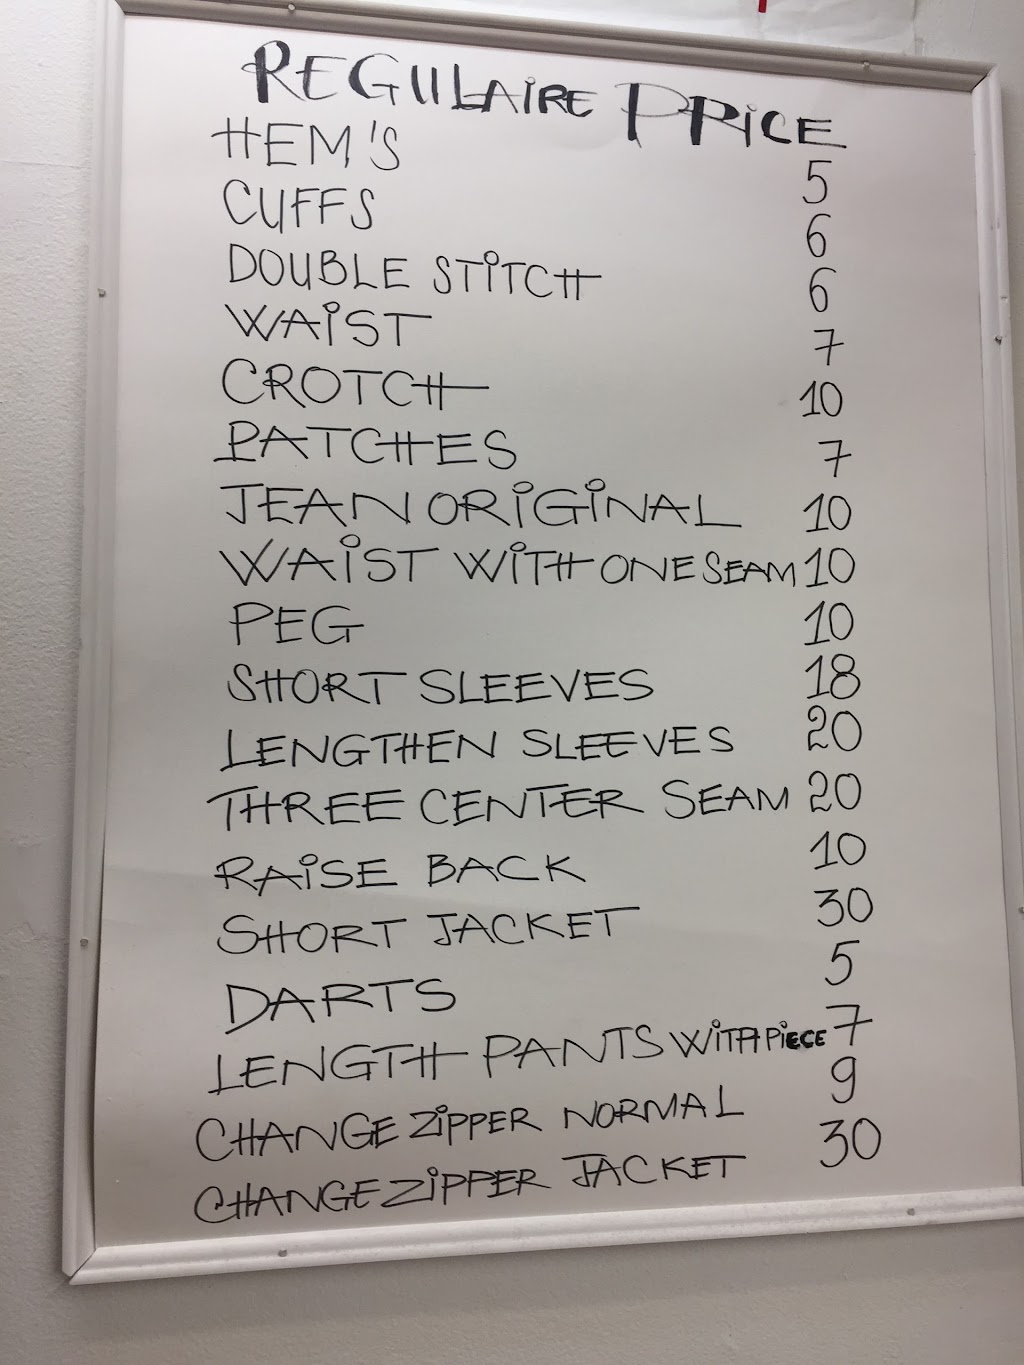 REGULAIRE PRICE
HEM'S 5
CUFFS 6
DOUBLE STITCH 6
WAIST 7
CROTCH 10
PATCHES 7
JEAN ORIGINAL 10
WAIST WITH ONE SEAM 10
PEG 10
SHORT SLEEVES 18
LENGTHEN SLEEVES 20
THREE CENTER SEAM 20
RAISE BACK 10
SHORT JACKET 30
DARTS 5
LENGTH PANTS WITH PIECE 7
CHANGE ZIPPER NORMAL 9
CHANGE ZIPPER JACKET 30